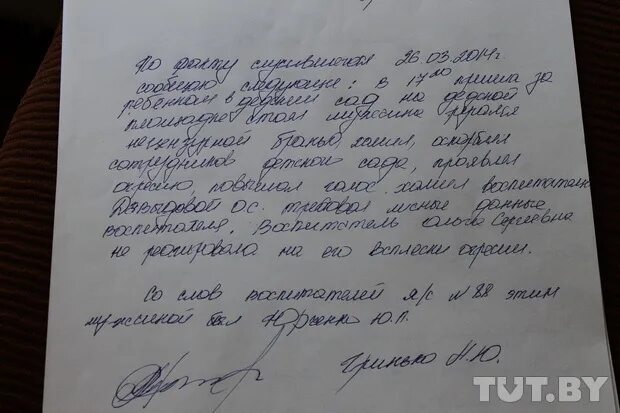 По факту случившегося 26.03.2014г.
сообщаю следующее: в 17⁰⁰ пришла за
ребенком в детский сад на детской
площадке стоял мужчина ругался
нецензурной бранью, хамил, оскорблял
сотрудников детского сада, проявлял
агрессию, повышал голос хамил воспитателю
Давыдовой О.С. требовал личные данные
воспитателя. Воспитатель Ольга Сергеевна
не реагировала на его всплески агрессии.
Со слов воспитателей я/с №88 этим
мужчиной был Юрченко Ю.П.
Гринько Н.Ю.
TUT.BY